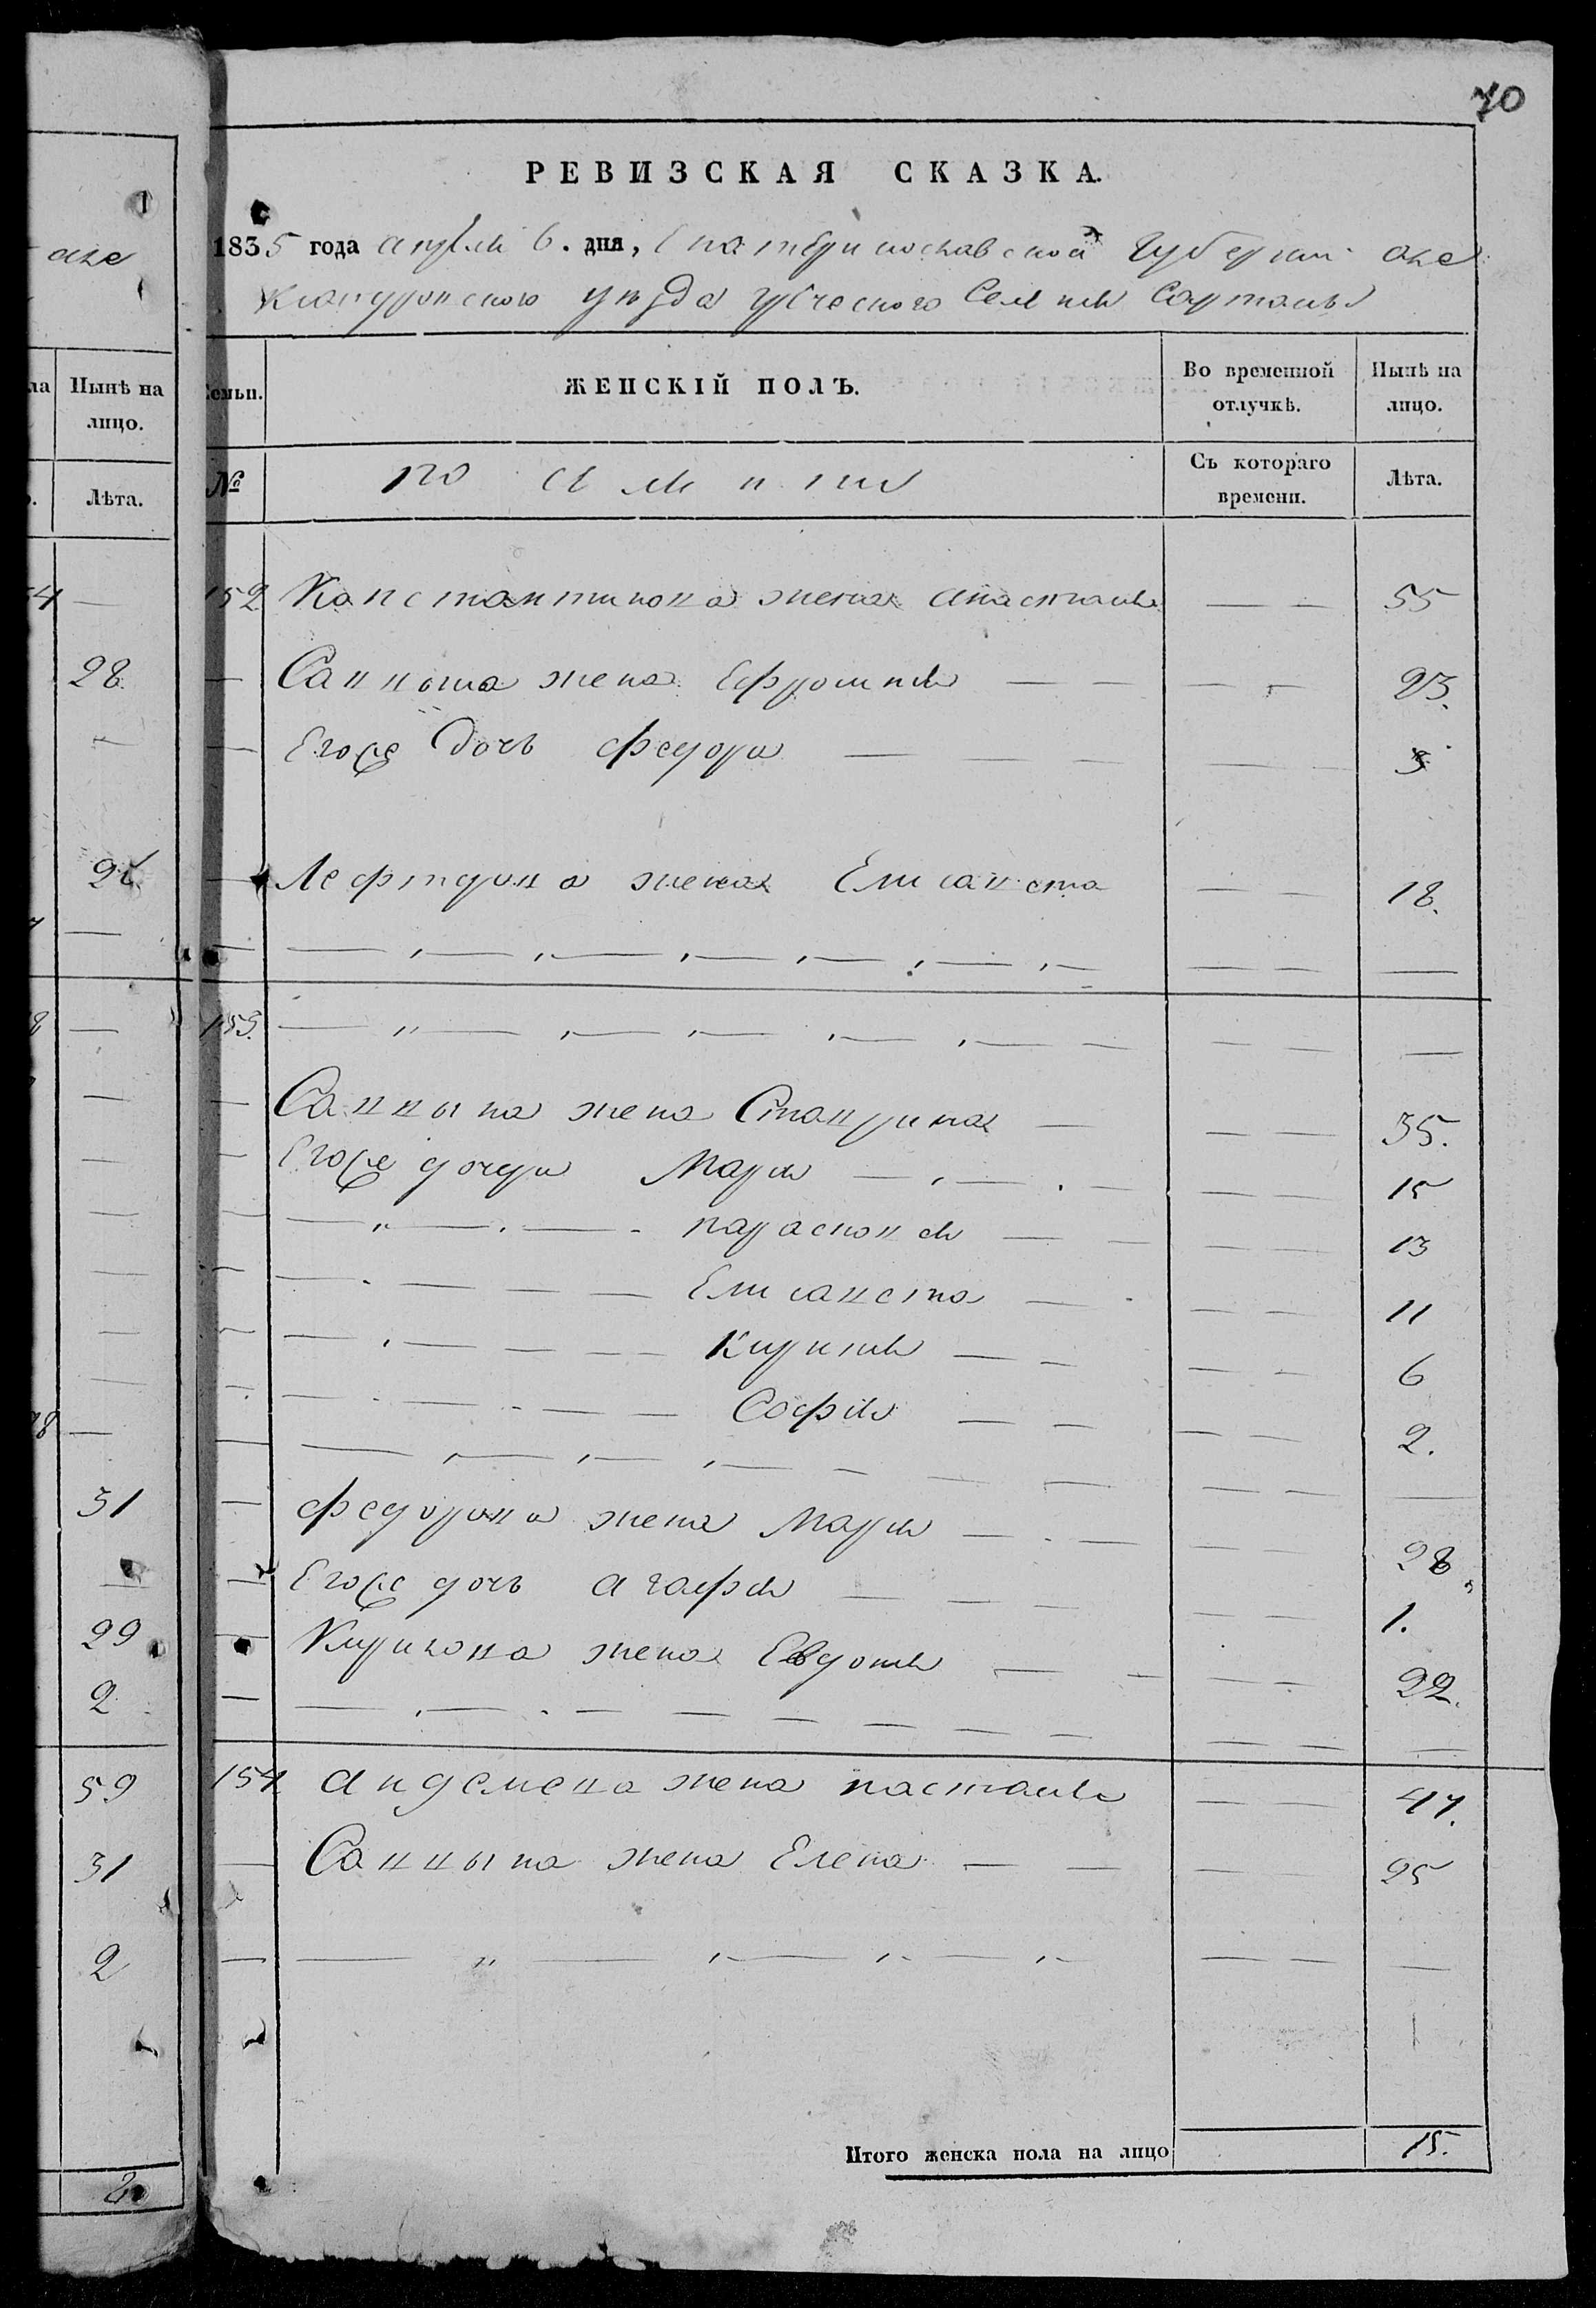 70
РЕВИЗСКАЯ СКАЗКА.
1835 года апреля 6. дня, Екатеринославской Губернии Але
ксандровского уезда греческого Селения Сартаны
Семьи.
ЖЕНСКІЙ ПОЛЪ.
Во временной отлучкѣ.
Нынѣ на лицо.
№
Съ котораго времени.
Лѣта.
152 Константинова жена Анастасия — — 55
— жена Ефросиния — — 23.
— Егоже дочь Федора — — 3
— Лефтерова жена Елисавета — — 18.
153.
— Саввына жена — — 35.
— Егоже дочери Мария — — 15
— Парасковия — — 13
— Елисавета — — 11
— Кириния — — 6
— София — — 2.
— Федорова жена Мария — — 28
— Егоже дочь Агафия — — 1.
— Кирикова жена Евдокия — — 22.
154 жена Настасия — — 47.
— Саввына жена Елена — — 25
Итого женска пола на лицо 15.
Нынѣ на лицо.
Лѣта.
28.
31
29
2
59
31
2